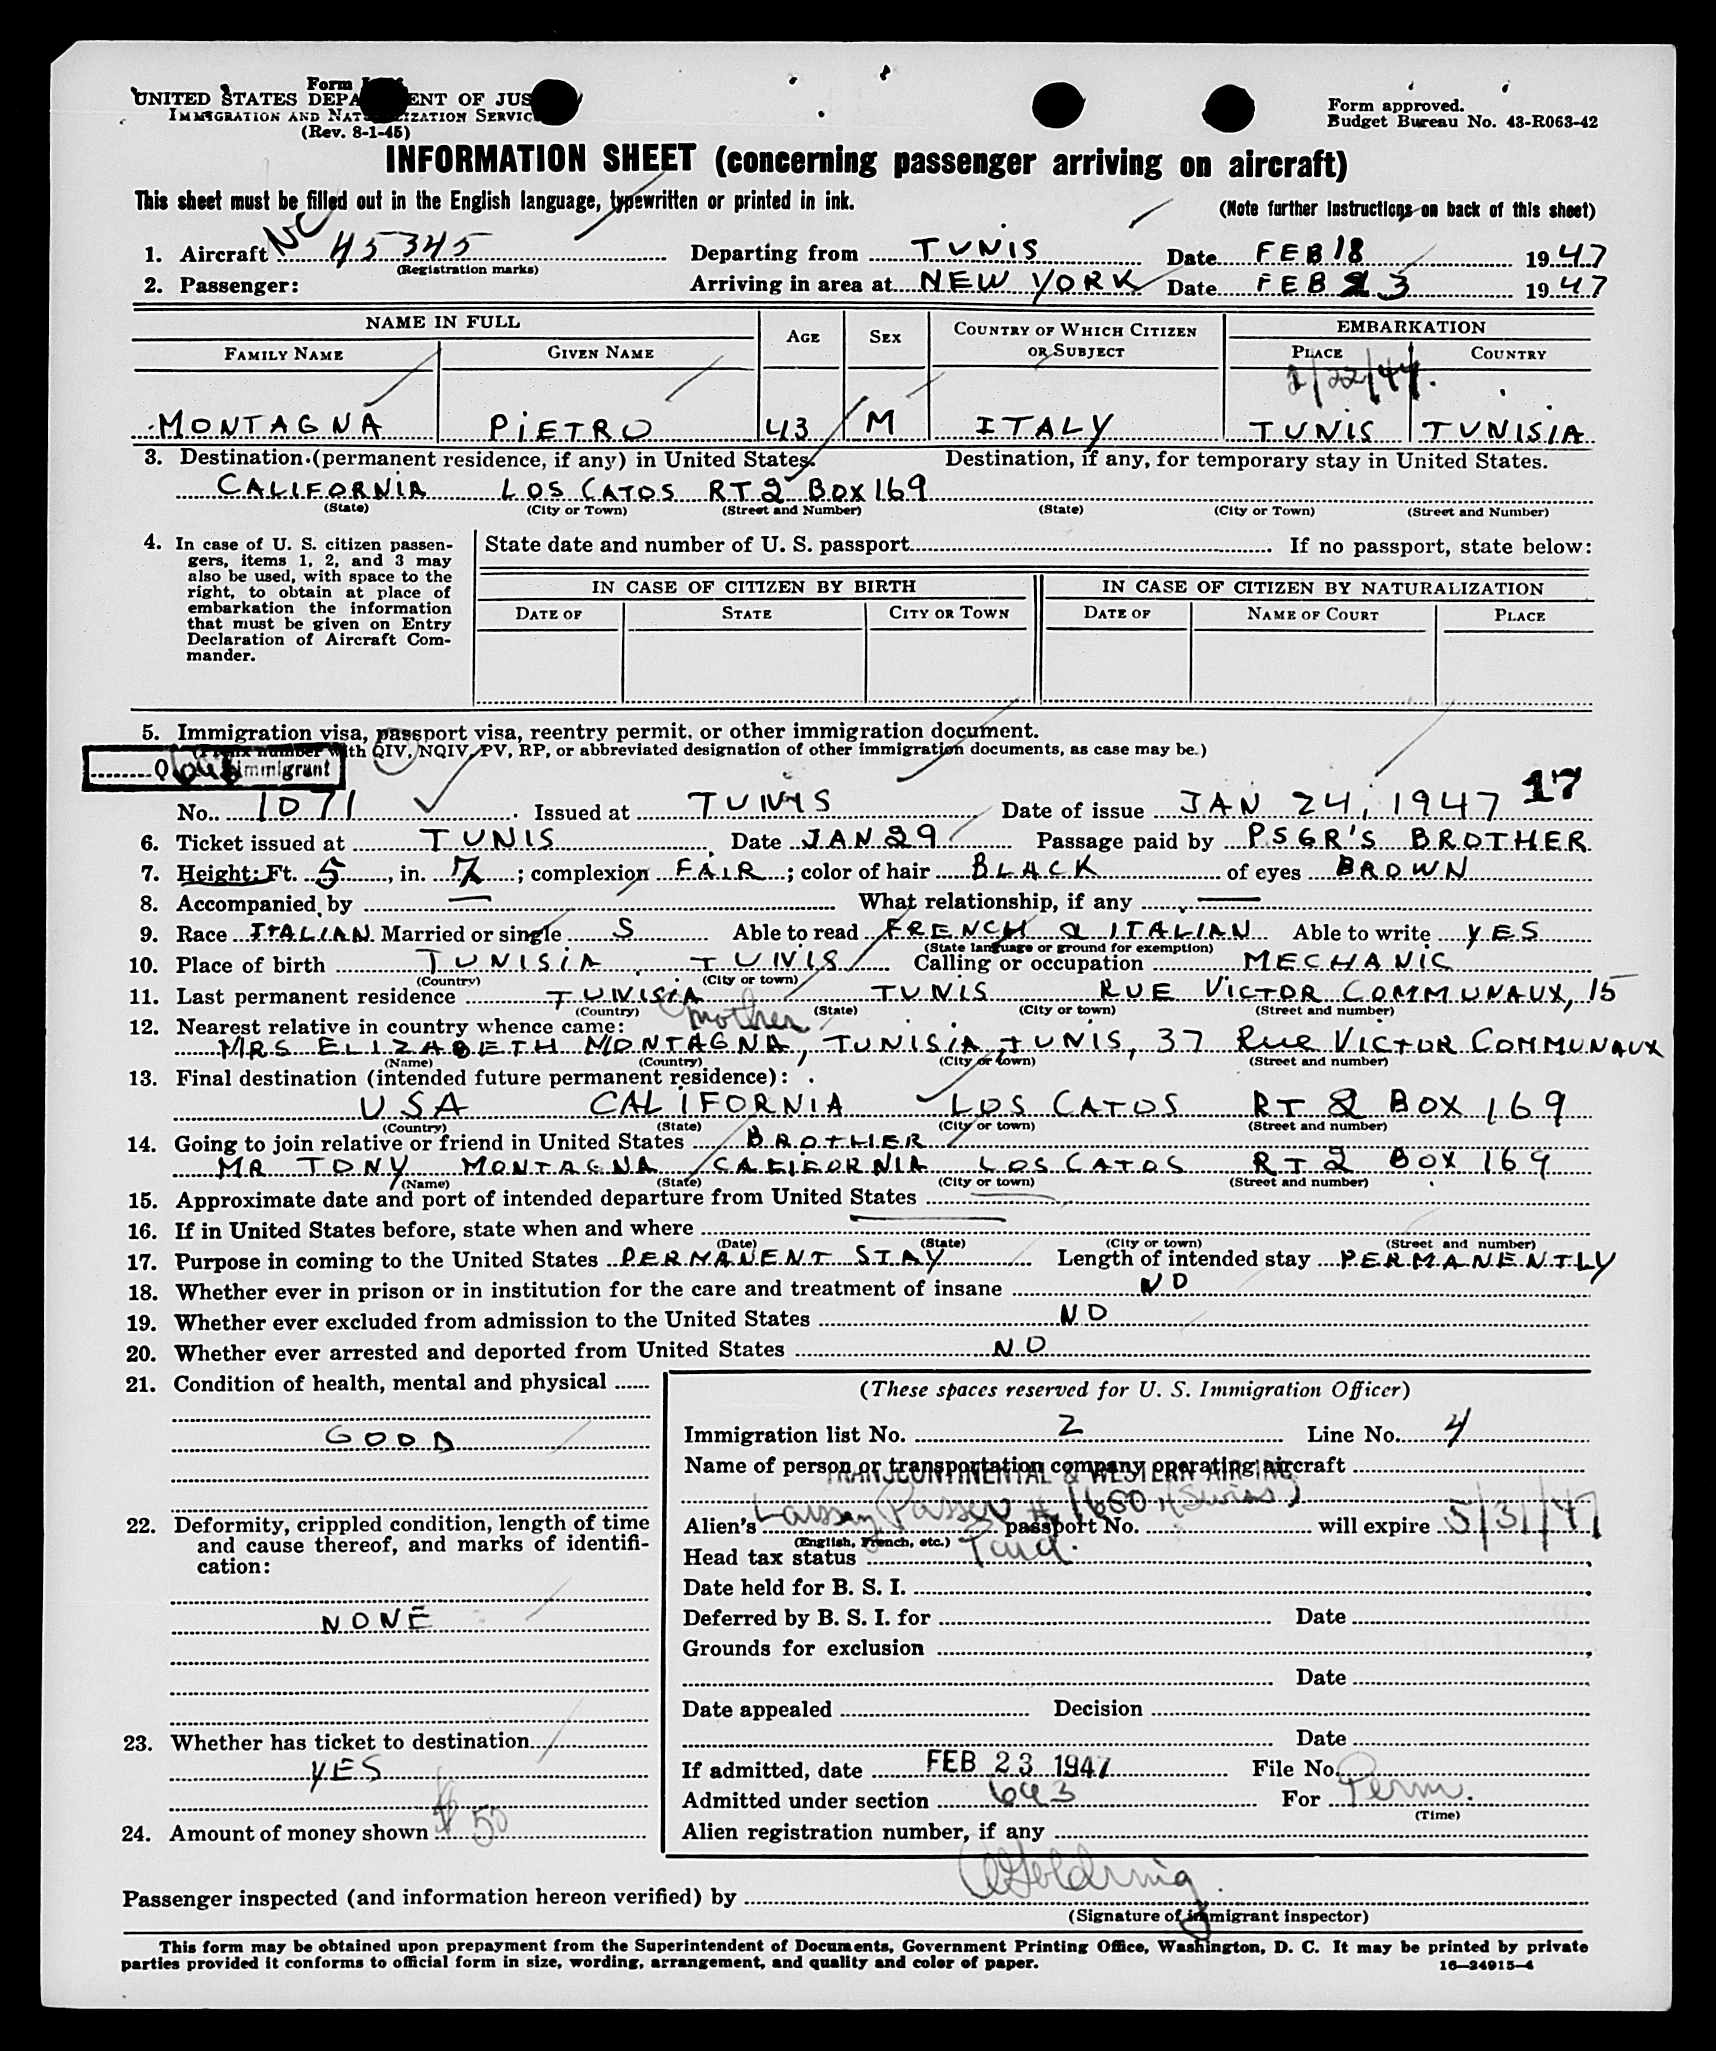 Form
UNITED STATES DEPA ENT OF JUS
IMMIGRATION AND NAT IZATION SERVIC
(Rev. 8-1-45)
Form approved.
Budget Bureau No. 43-R063-42
INFORMATION SHEET (concerning passenger arriving on aircraft)
This sheet must be filled out in the English language, typewritten or printed in ink.
(Note further instructions on back of this sheet)
1. Aircraft NC 45345 Departing from TUNIS Date FEB 18 1947
(Registration marks)
2. Passenger: Arriving in area at NEW YORK Date FEB 23 1947
NAME IN FULL AGE SEX COUNTRY OF WHICH CITIZEN OR SUBJECT EMBARKATION
FAMILY NAME GIVEN NAME PLACE COUNTRY
1/22/47.
MONTAGNA PiETRO 43 M ITALY TUNIS TUNISIA
3. Destination (permanent residence, if any) in United States. Destination, if any, for temporary stay in United States.
CALIFORNIA LOS CATOS RT 2 BOX 169
(State) (City or Town) (Street and Number) (State) (City or Town) (Street and Number)
4. In case of U. S. citizen passengers, items 1, 2, and 3 may also be used, with space to the right, to obtain at place of embarkation the information that must be given on Entry Declaration of Aircraft Commander.
State date and number of U. S. passport If no passport, state below:
IN CASE OF CITIZEN BY BIRTH IN CASE OF CITIZEN BY NATURALIZATION
DATE OF STATE CITY OR TOWN DATE OF NAME OF COURT PLACE
5. Immigration visa, passport visa, reentry permit, or other immigration document.
(Prefix number with QIV, NQIV, PV, RP, or abbreviated designation of other immigration documents, as case may be.)
immigrant
17
No. 1071 Issued at TUNIS Date of issue JAN 24, 1947
6. Ticket issued at TUNIS Date JAN 29 Passage paid by PSGR'S BROTHER
7. Height: Ft. 5, in. 7; complexion FAIR; color of hair BLACK of eyes BROWN
8. Accompanied by — What relationship, if any —
9. Race ITALIAN Married or single S Able to read FRENCH & ITALIAN Able to write YES
(State language or ground for exemption)
10. Place of birth TUNISIA TUNIS Calling or occupation MECHANIC
(Country) (City or town)
11. Last permanent residence TUNISIA TUNIS RUE VICTOR COMMUNAUX, 15
(Country) (State) (City or town) (Street and number)
12. Nearest relative in country whence came: mother
MRS ELIZABETH MONTAGNA, TUNISIA, TUNIS, 37 Rue VICTOR COMMUNAUX
(Name) (Country) (City or town) (Street and number)
13. Final destination (intended future permanent residence):
USA CALIFORNIA LOS CATOS RT 2 BOX 169
(Country) (State) (City or town) (Street and number)
14. Going to join relative or friend in United States BROTHER
MR TONY MONTAGNA CALIFORNIA LOS CATOS RT 2 BOX 169
(Name) (State) (City or town) (Street and number)
15. Approximate date and port of intended departure from United States —
16. If in United States before, state when and where —
(Date) (State) (City or town) (Street and number)
17. Purpose in coming to the United States PERMANENT STAY Length of intended stay PERMANENTLY
18. Whether ever in prison or in institution for the care and treatment of insane NO
19. Whether ever excluded from admission to the United States NO
20. Whether ever arrested and deported from United States NO
21. Condition of health, mental and physical
GOOD
22. Deformity, crippled condition, length of time and cause thereof, and marks of identification:
NONE
23. Whether has ticket to destination
YES
24. Amount of money shown $50
(These spaces reserved for U. S. Immigration Officer)
Immigration list No. 2 Line No. 4
Name of person or transportation company operating aircraft
TRANSCONTINENTAL & WESTERN AIR INC
Laissez Passer # 1680 (Swiss)
Alien's passport No. will expire 5/31/47
(English, French, etc.)
Head tax status Paid.
Date held for B. S. I.
Deferred by B. S. I. for Date
Grounds for exclusion
Date
Date appealed Decision
Date
If admitted, date FEB 23 1947 File No.
Admitted under section 6a3 For Perm.
(Time)
Alien registration number, if any
Passenger inspected (and information hereon verified) by
(Signature of immigrant inspector)
This form may be obtained upon prepayment from the Superintendent of Documents, Government Printing Office, Washington, D. C. It may be printed by private
parties provided it conforms to official form in size, wording, arrangement, and quality and color of paper.
16—24915-4